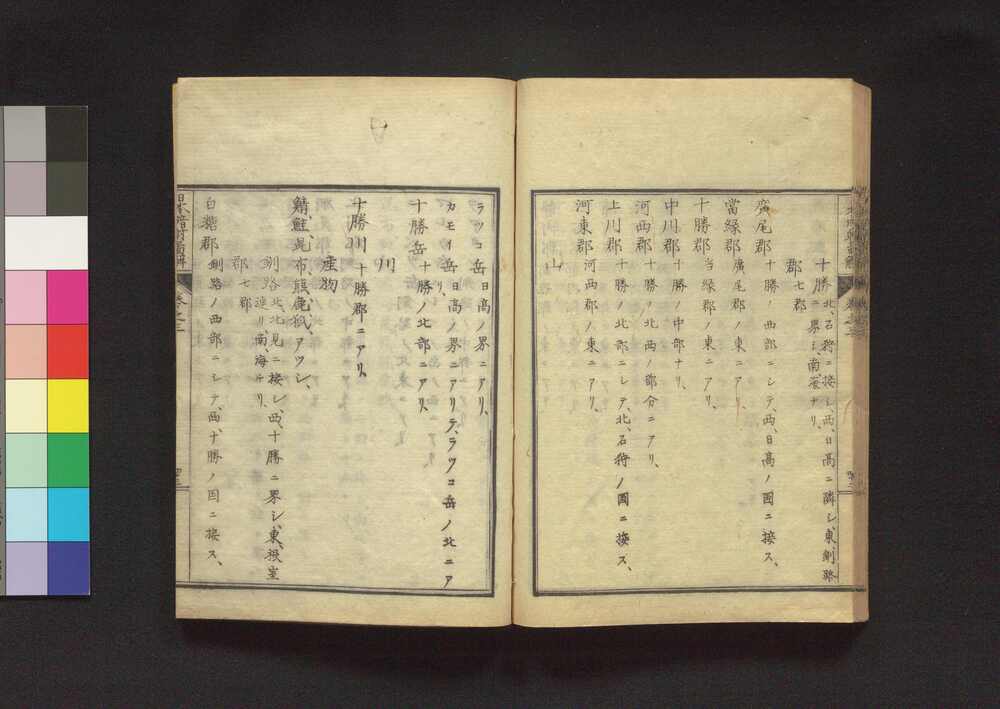 十勝北、石狩ニ接シ、西、日高ニ隣シ、東、釧路
ニ界シ、南、海ナリ、
郡七郡
廣尾郡十勝ノ西部ニシテ、西、日高ノ國ニ接ス、
當縁郡廣尾郡ノ東ニアリ、
十勝郡当縁郡ノ東ニアリ、
中川郡十勝ノ中部ナリ、
河西郡十勝ノ北西ノ部分ニアリ、
上川郡十勝ノ北部ニシテ、北、石狩ノ國ニ接ス、
河東郡河西郡ノ東ニアリ、
山
ラツコ岳日高ノ界ニアリ、
カモイ岳日高ノ界ニアリテ、ラツコ岳ノ北ニア
リ、
十勝岳十勝ノ北部ニアリ、
川
十勝川十勝郡ニアリ、
産物
鯖、鮭、昆布、熊、鹿、狐、アツシ、
釧路北、北見ニ接シ、西、十勝ニ界シ、東、根室
ニ連リ、南、海ナリ、
郡七郡
白糠郡釧路ノ西部ニシテ、西、十勝ノ國ニ接ス、
卷之三